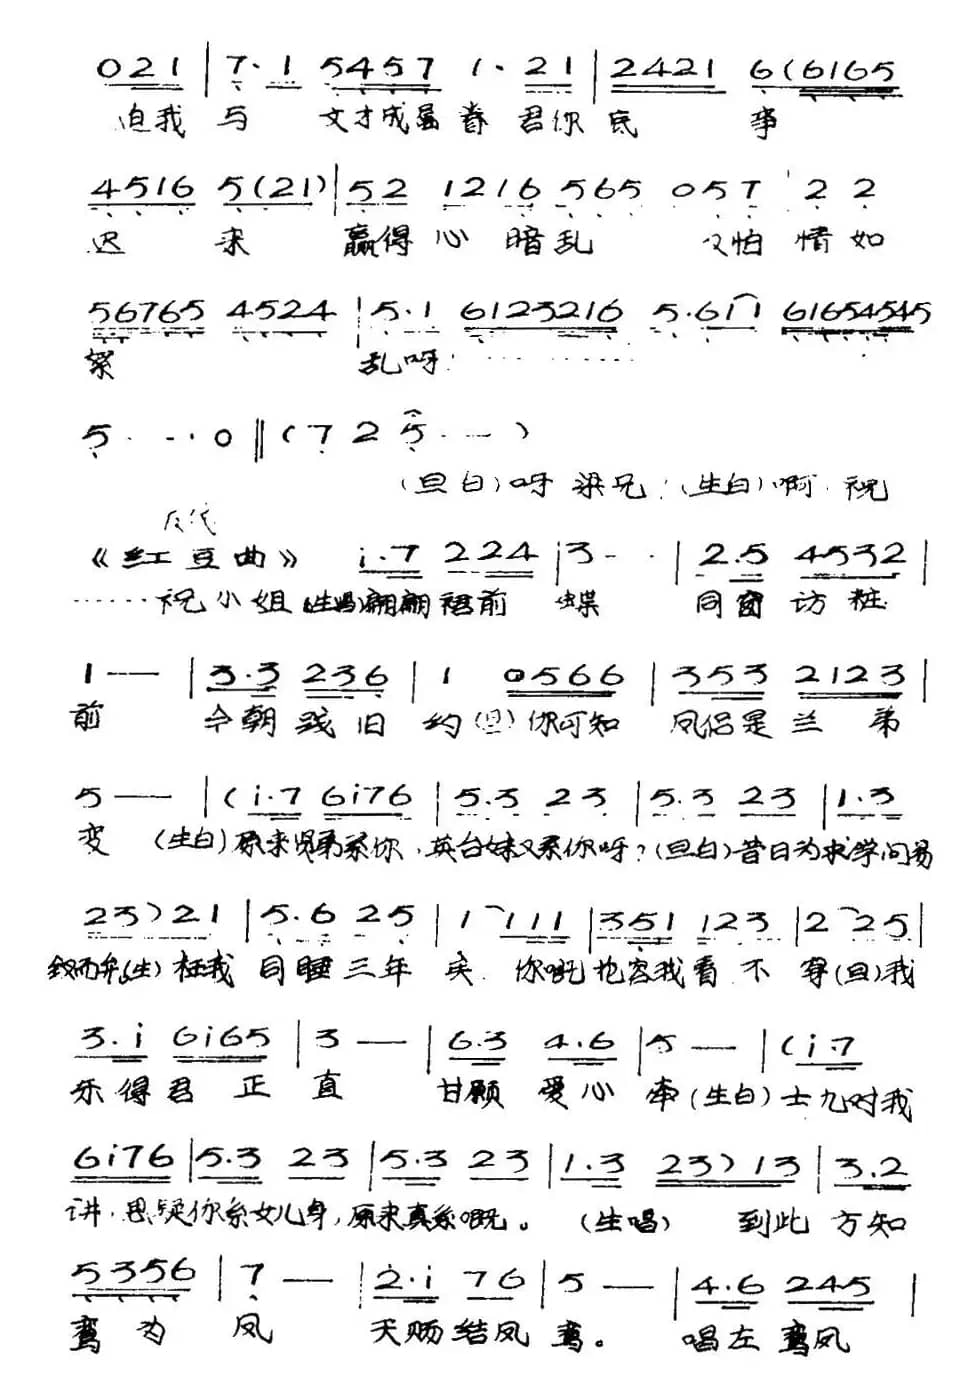 021 | 7·1 5457 1·21 | 2421 6(6165
迫我 与 文才成眷 君你 事
4516 5(21) | 52 1216 565 057 22
迟 来 赢得 心 暗乱 又怕 情如
56765 4524 | 5·1 6123216 5·6i1 61654545
絮 乱呀
5···0 ‖ (7 2 5·—)
(旦白)呀 梁兄!(生白)啊 祝
《红豆曲》 i·7 224 | 3·· | 2·5 4532 |
······祝小姐(生唱)翩翩裙前 蝶 同窗 访 妆
1—— | 3·3 236 | 1 0566 | 353 2123 |
前 今朝践旧 约(旦)你可知 凤侣是兰 弟
5—— | (i·7 6i76 | 5·3 23 | 5·3 23 | 1·3
变 (生白)原来贤弟系你,英台妹又系你呀?(旦白)昔日为求学问易
23)21 | 5·6 25 | 1 111 | 351 123 | 2 25 |
钗而弁(生)枉我 同睡三年 矣 你嘅 我看 不 穿(旦)我
3·i 6i65 | 3 — | 6·3 4·6 | 5 — | (i·7
乐得君 正 直 甘愿 爱心 牵(生白)士九对我
6i76 | 5·3 23 | 5·3 23 | 1·3 23)13 | 3·2
讲,思疑你系女儿身,原来真系嘅。(生唱) 到此 方知
5356 | 7 — | 2·i 76 | 5 — | 4·6 245 |
鸾 为 凤 天赐结凤 鸾。 唱左鸾凤